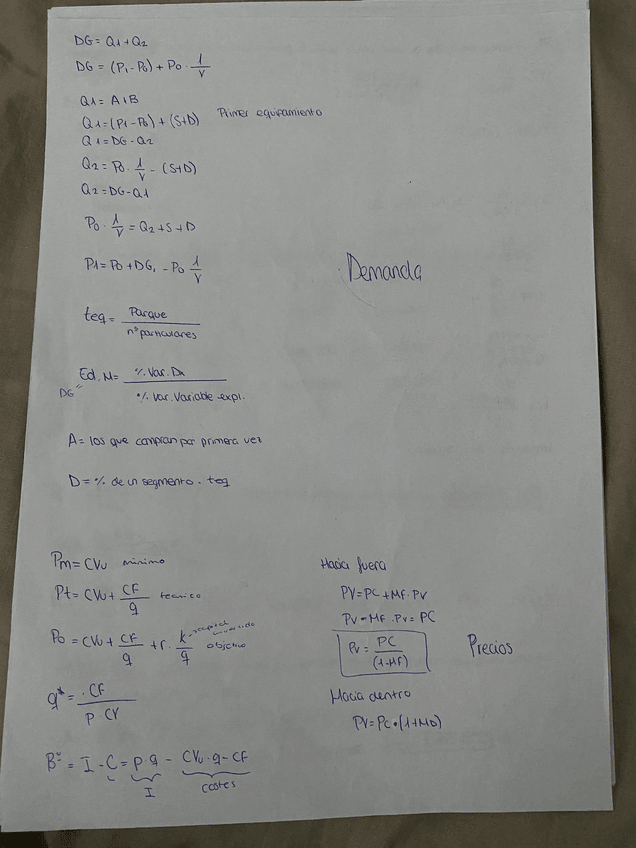 DG = Q1 + Q2
DG = (P1 - P0) + P0 · 1/V
Q1 = A + B
Q1 = (P1 - P0) + (S+D) Primer equipamiento
Q1 = DG - Q2
Q2 = P0 · 1/V - (S+D)
Q2 = DG - Q1
P0 · 1/V = Q2 + S + D
P1 = P0 + DG1 - P0 1/V
Demanda
teq = Parque / nº particulares
Ed.M = % Var. Dx / % Var. Variable expl.
DG"
A = los que compran por primera vez
D = % de un segmento · teq
Pm = CVu mínimo
Pt = CVu + CF/q técnico
Po = CVu + CF/q + r · k/q objetivo
k → capital invertido
q* = CF / P CV
Bº = I - C = p · q - CVu · q - CF
I costes
Hacia fuera
PV = PC + Mf · PV
PV - Mf · PV = PC
Pv = PC / (1 - Mf)
Precios
Hacia dentro
PV = PC · (1 + MD)